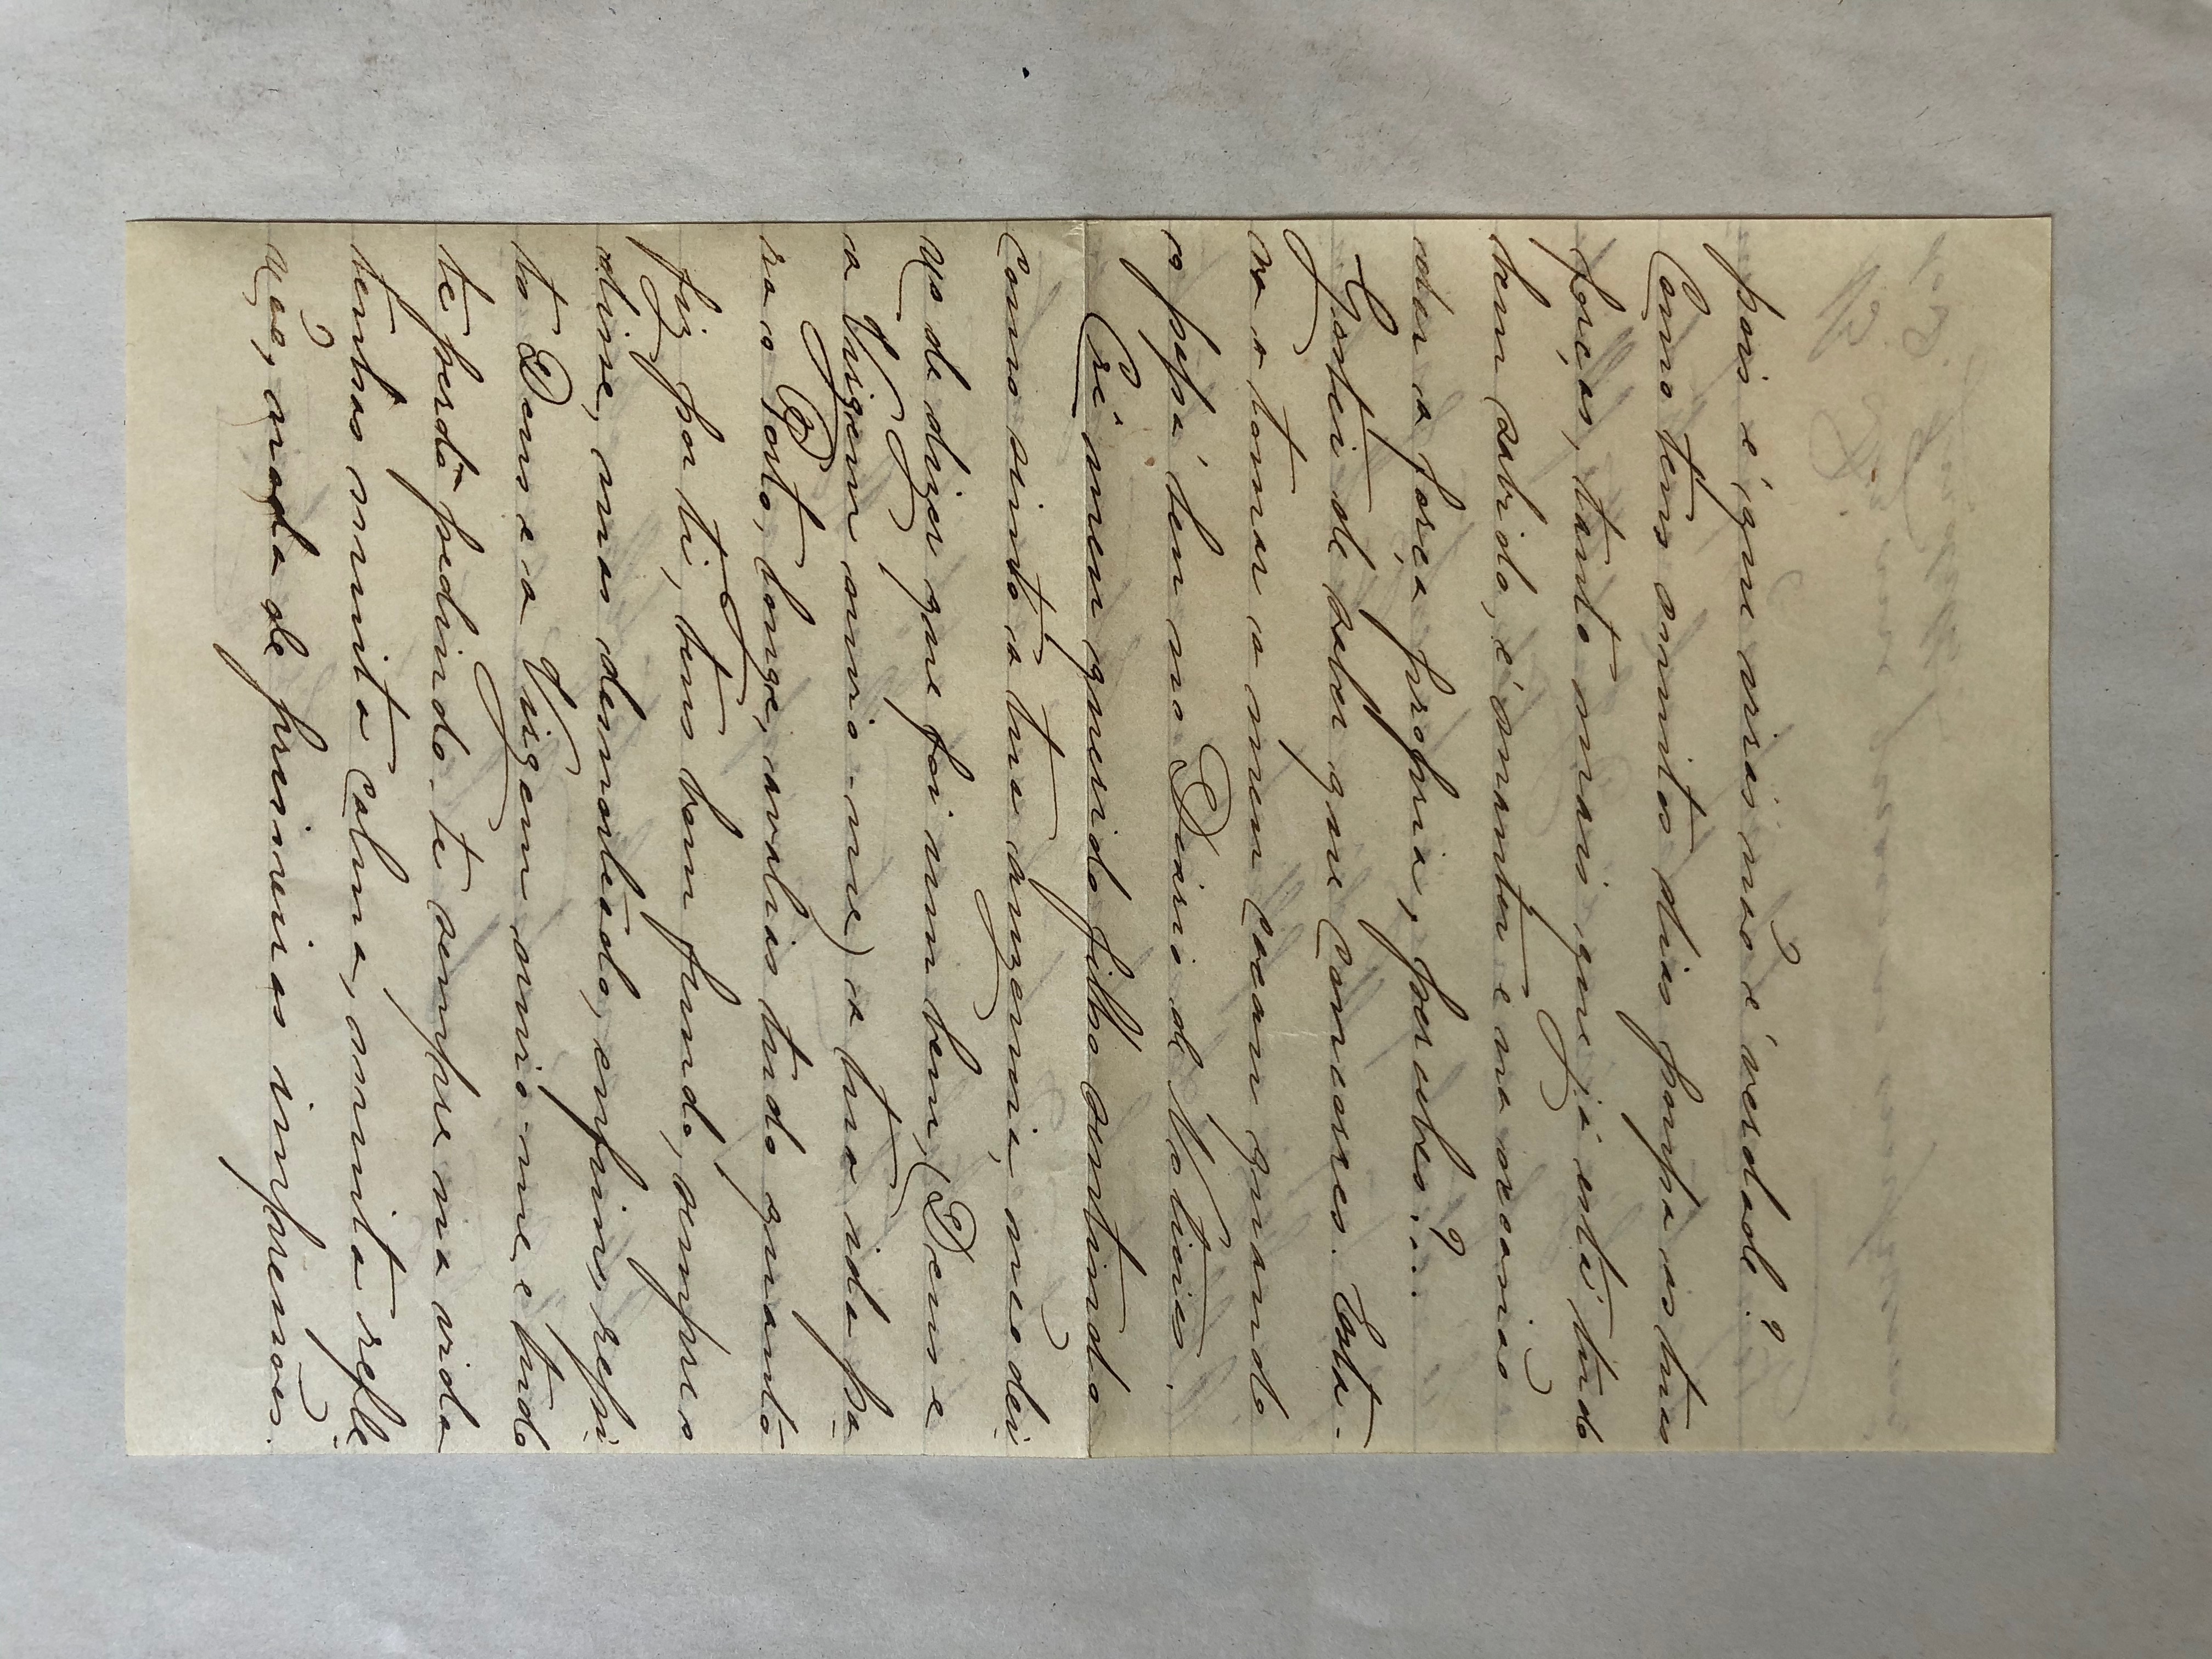 pois é que virás não é verdade?
Como tens muitos dias poupa as tuas
forças, tanto mais que já está tudo
bem sabido, é manter e na occasião
dar a força propria, percebes?...
Gostei de saber que concorres. Esta-
va a tomar o meu cacau quando
o papá leu no Diario de Noticias.
Crê meu querido filho sentindo
como sinto a tua auzencia, não dei-
xo de dizer que foi um bem, (Deus e
a Virgem ouvio-me) a tua ida pa-
ra o Porto, longe, avalias tudo quanto
fiz por ti, tens bom fundo, sempre o
disse, mas desnorteado, enfim, repi-
to Deus e a Virgem ouvio-me e tudo
te perdôo pedindo-te sempre na vida
tenhas muita calma, muita refle-
xão, nada de primeiras impressões.